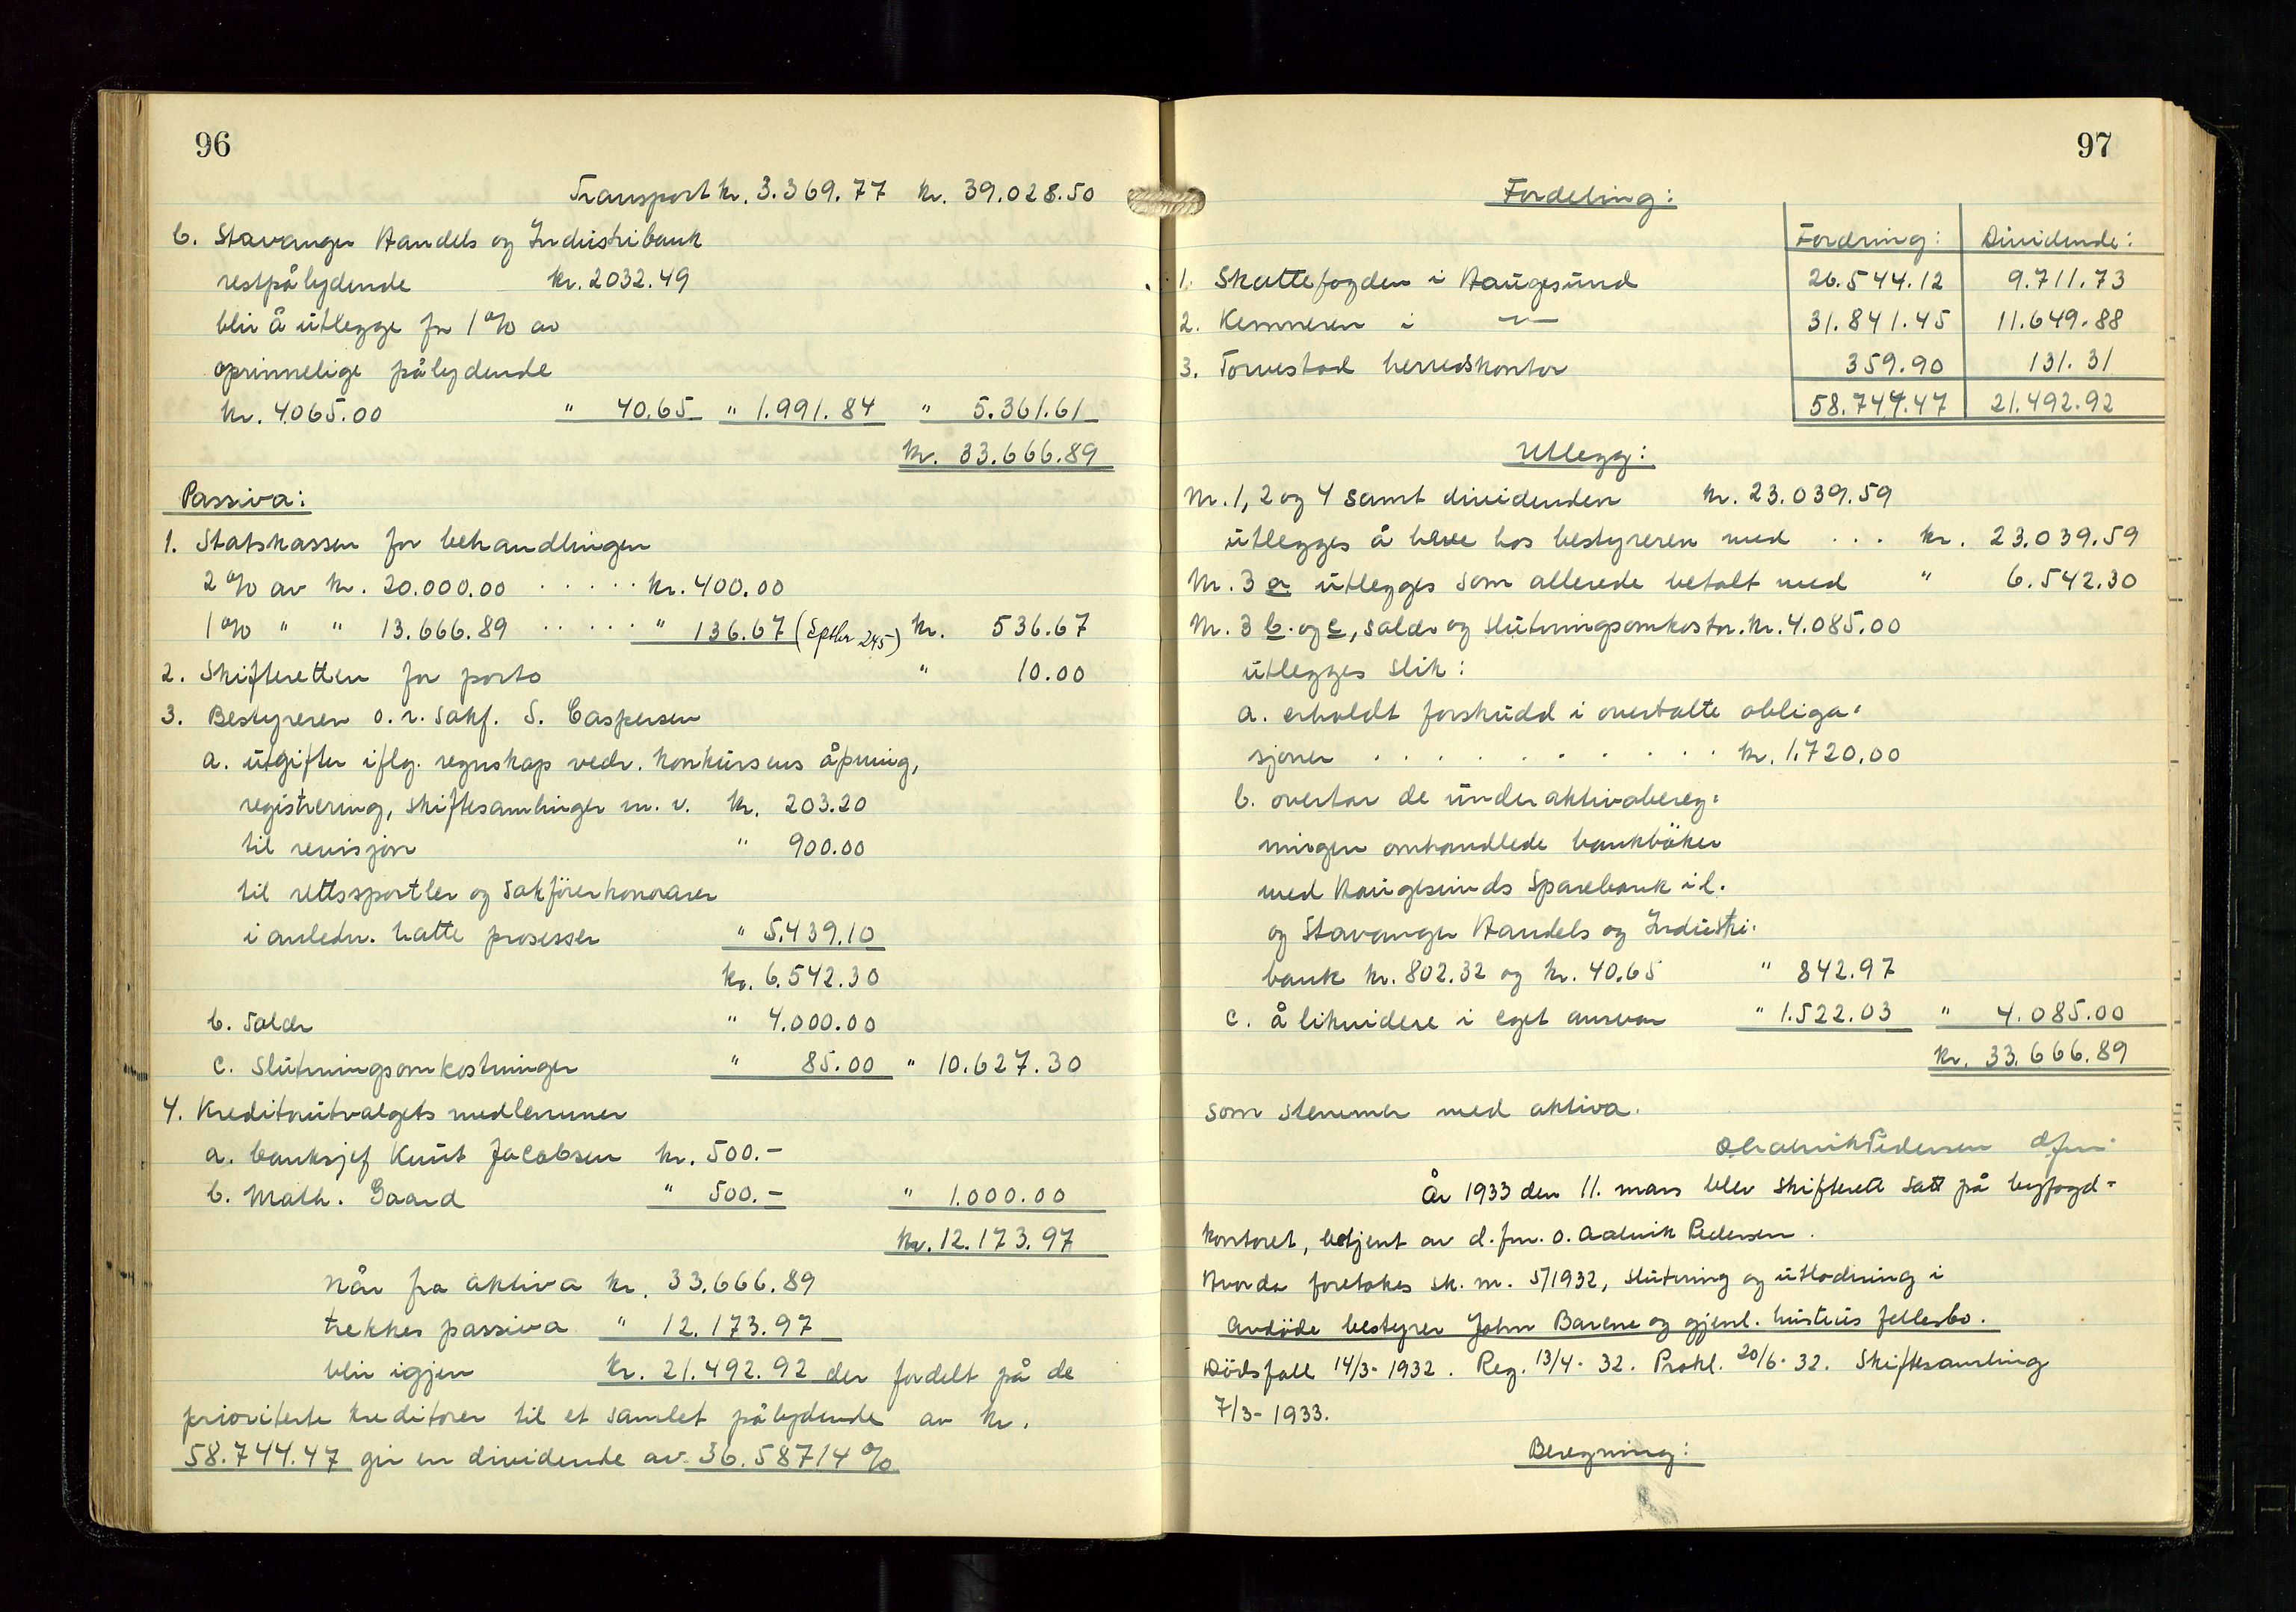 96
Transport kr. 3.369.77 kr. 39.028.50
b. Stavanger Handels og Industribank
restpålydende kr. 2032.49
blir å utlegge for 1% av
oprinnelige pålydende
kr. 4065.00 " 40.65 " 1.991.84 " 5.361.61
kr. 33.666.89
Passiva:
1. Statskassen for behandlingen
2% av kr. 20.000.00 . . . . . kr. 400.00
1% " " 13.666.89 . . . . . " 136.67 (Sptlnr 245) kr. 536.67
2. Skifteretten for porto " 10.00
3. Bestyreren o.r. sakf. S. Caspersen
a. utgifter iflg. regnskap vedr. konkursens åpning,
registrering, skiftesamlinger m. v. kr. 203.20
til revisjon " 900.00
til rettssportler og sakförerhonorarer
i anledn. hatte prosesser " 5.439.10
kr. 6.542.30
b. Salær " 4.000.00
c. Slutningsomkostninger " 85.00 " 10.627.30
4. Kreditorutvalgets medlemmer
a. banksjef Knut Jacobsen kr. 500.-
b. Math. Gaard " 500.- " 1.000.00
kr. 12.173.97
Når fra aktiva kr. 33.666.89
trekkes passiva " 12.173.97
blir igjen kr. 21.492.92 der fordelt på de
prioriterte kreditorer til et samlet pålydende av kr.
58.744.47 gir en dividende av 36.58714%
97
Fordeling:
Fordring: Dividende:
1. Skattefogden i Haugesund 26.544.12 9.711.73
2. Kemneren i —"— 31.841.45 11.649.88
3. Torvestad herredskontor 359.90 131.31
58.744.47 21.492.92
Utlegg:
Nr. 1, 2 og 4 samt dividenden kr. 23.039.59
utlegges å heve hos bestyreren med . . . kr. 23.039.59
Nr. 3 a utlegges som allerede betalt med " 6.542.30
Nr. 3 b. og c, salær og slutningsomkostn. kr. 4.085.00
utlegges slik:
a. erholdt forskudd i overtatte obliga=
sjoner . . . . . . . . . . . kr. 1.720.00
b. overtar de under aktivabereg=
ningen omhandlede bankböker
med Haugesunds Sparebank i l.
og Stavanger Handels og Industri-
bank kr. 802.32 og kr. 40.65 " 842.97
c. å likvidere i eget ansvar " 1.522.03 " 4.085.00
kr. 33.666.89
som stemmer med aktiva.
O. Aadnvik Pedersen dfm
År 1933 den 11. mars blev skifterett satt på byfogd=
kontoret, betjent av d. fm. O. Aadnvik Pedersen.
Hvorda foretokes sk. nr. 5/1932, slutning og utlodning i
avdöde bestyrer John Barene og gjenl. hustrus fellesbo.
Dödsfall 14/3- 1932. Reg. 13/4- 32. Prokl. 20/6- 32. Skiftesamling
7/3- 1933.
Beregning: